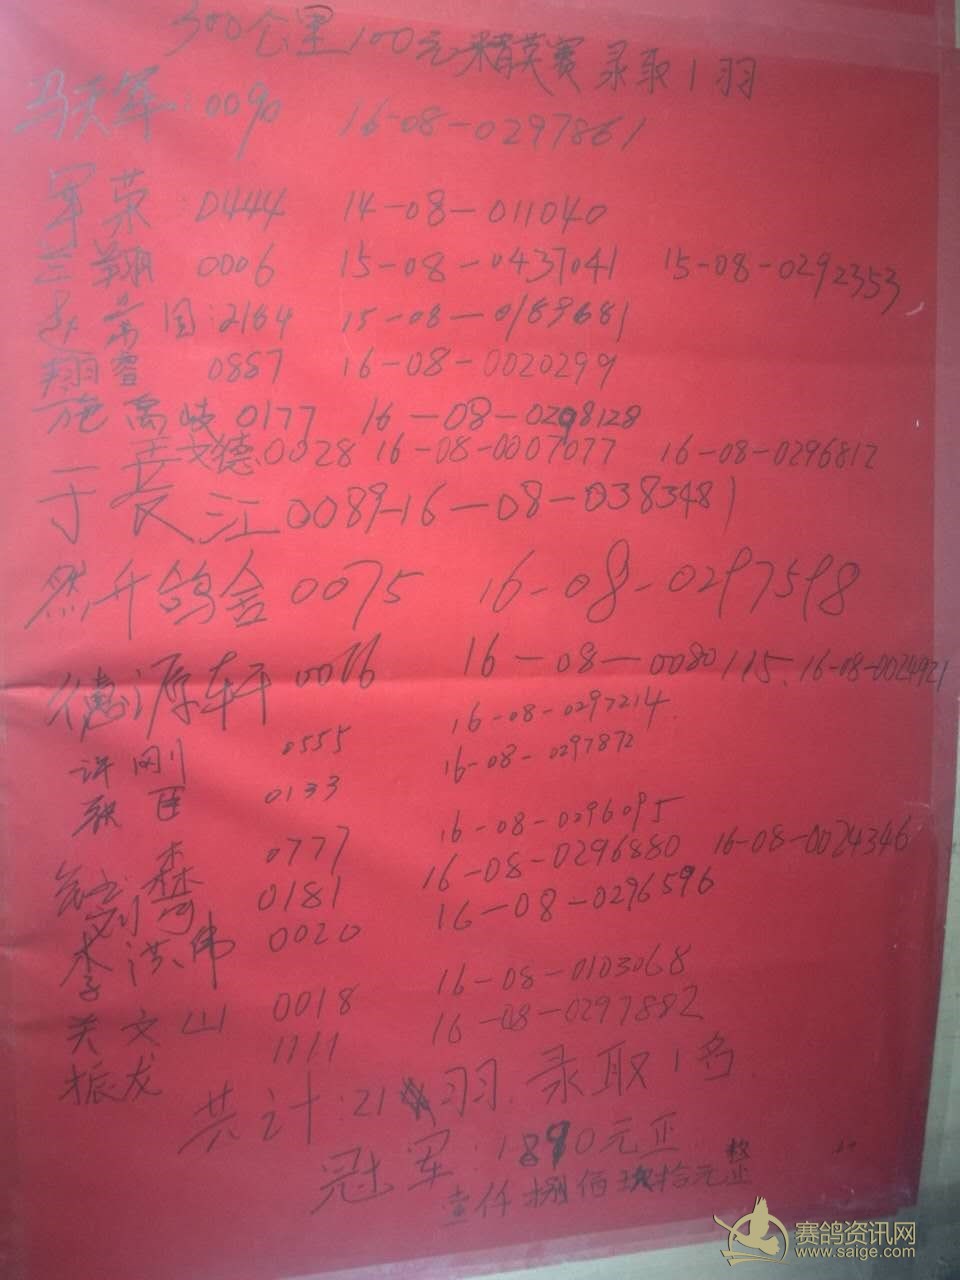 300公里100元精英赛录取1羽
马天军:0090 16-08-0297861
军荣:0444 14-08-011040
兰翔 0006 15-08-0437041 15-08-0292353
国:2164 15-08-0189681
翔睿 0887 16-08-0020299
施禹岐 0177 16-08-0298128
德0028 16-08-0007077 16-08-0296812
于长江0089-16-08-0383481
然升鸽舍0075 16-08-0297598
德源轩0076 16-08-0080115、16-08-0024921
许刚 0555 16-08-0297214
耿臣 0133 16-08-0297872
森 0777 16-08-0296095
刘奇 0181 16-08-0296880 16-08-0024346
李洪伟 0020 16-08-0296596
关文山 0018 16-08-0103068
振龙 1111 16-08-0297882
共计:21羽.录取1名
冠军:1890元正
壹仟捌佰玖拾元整
赛鸽资讯网
www.saige.com